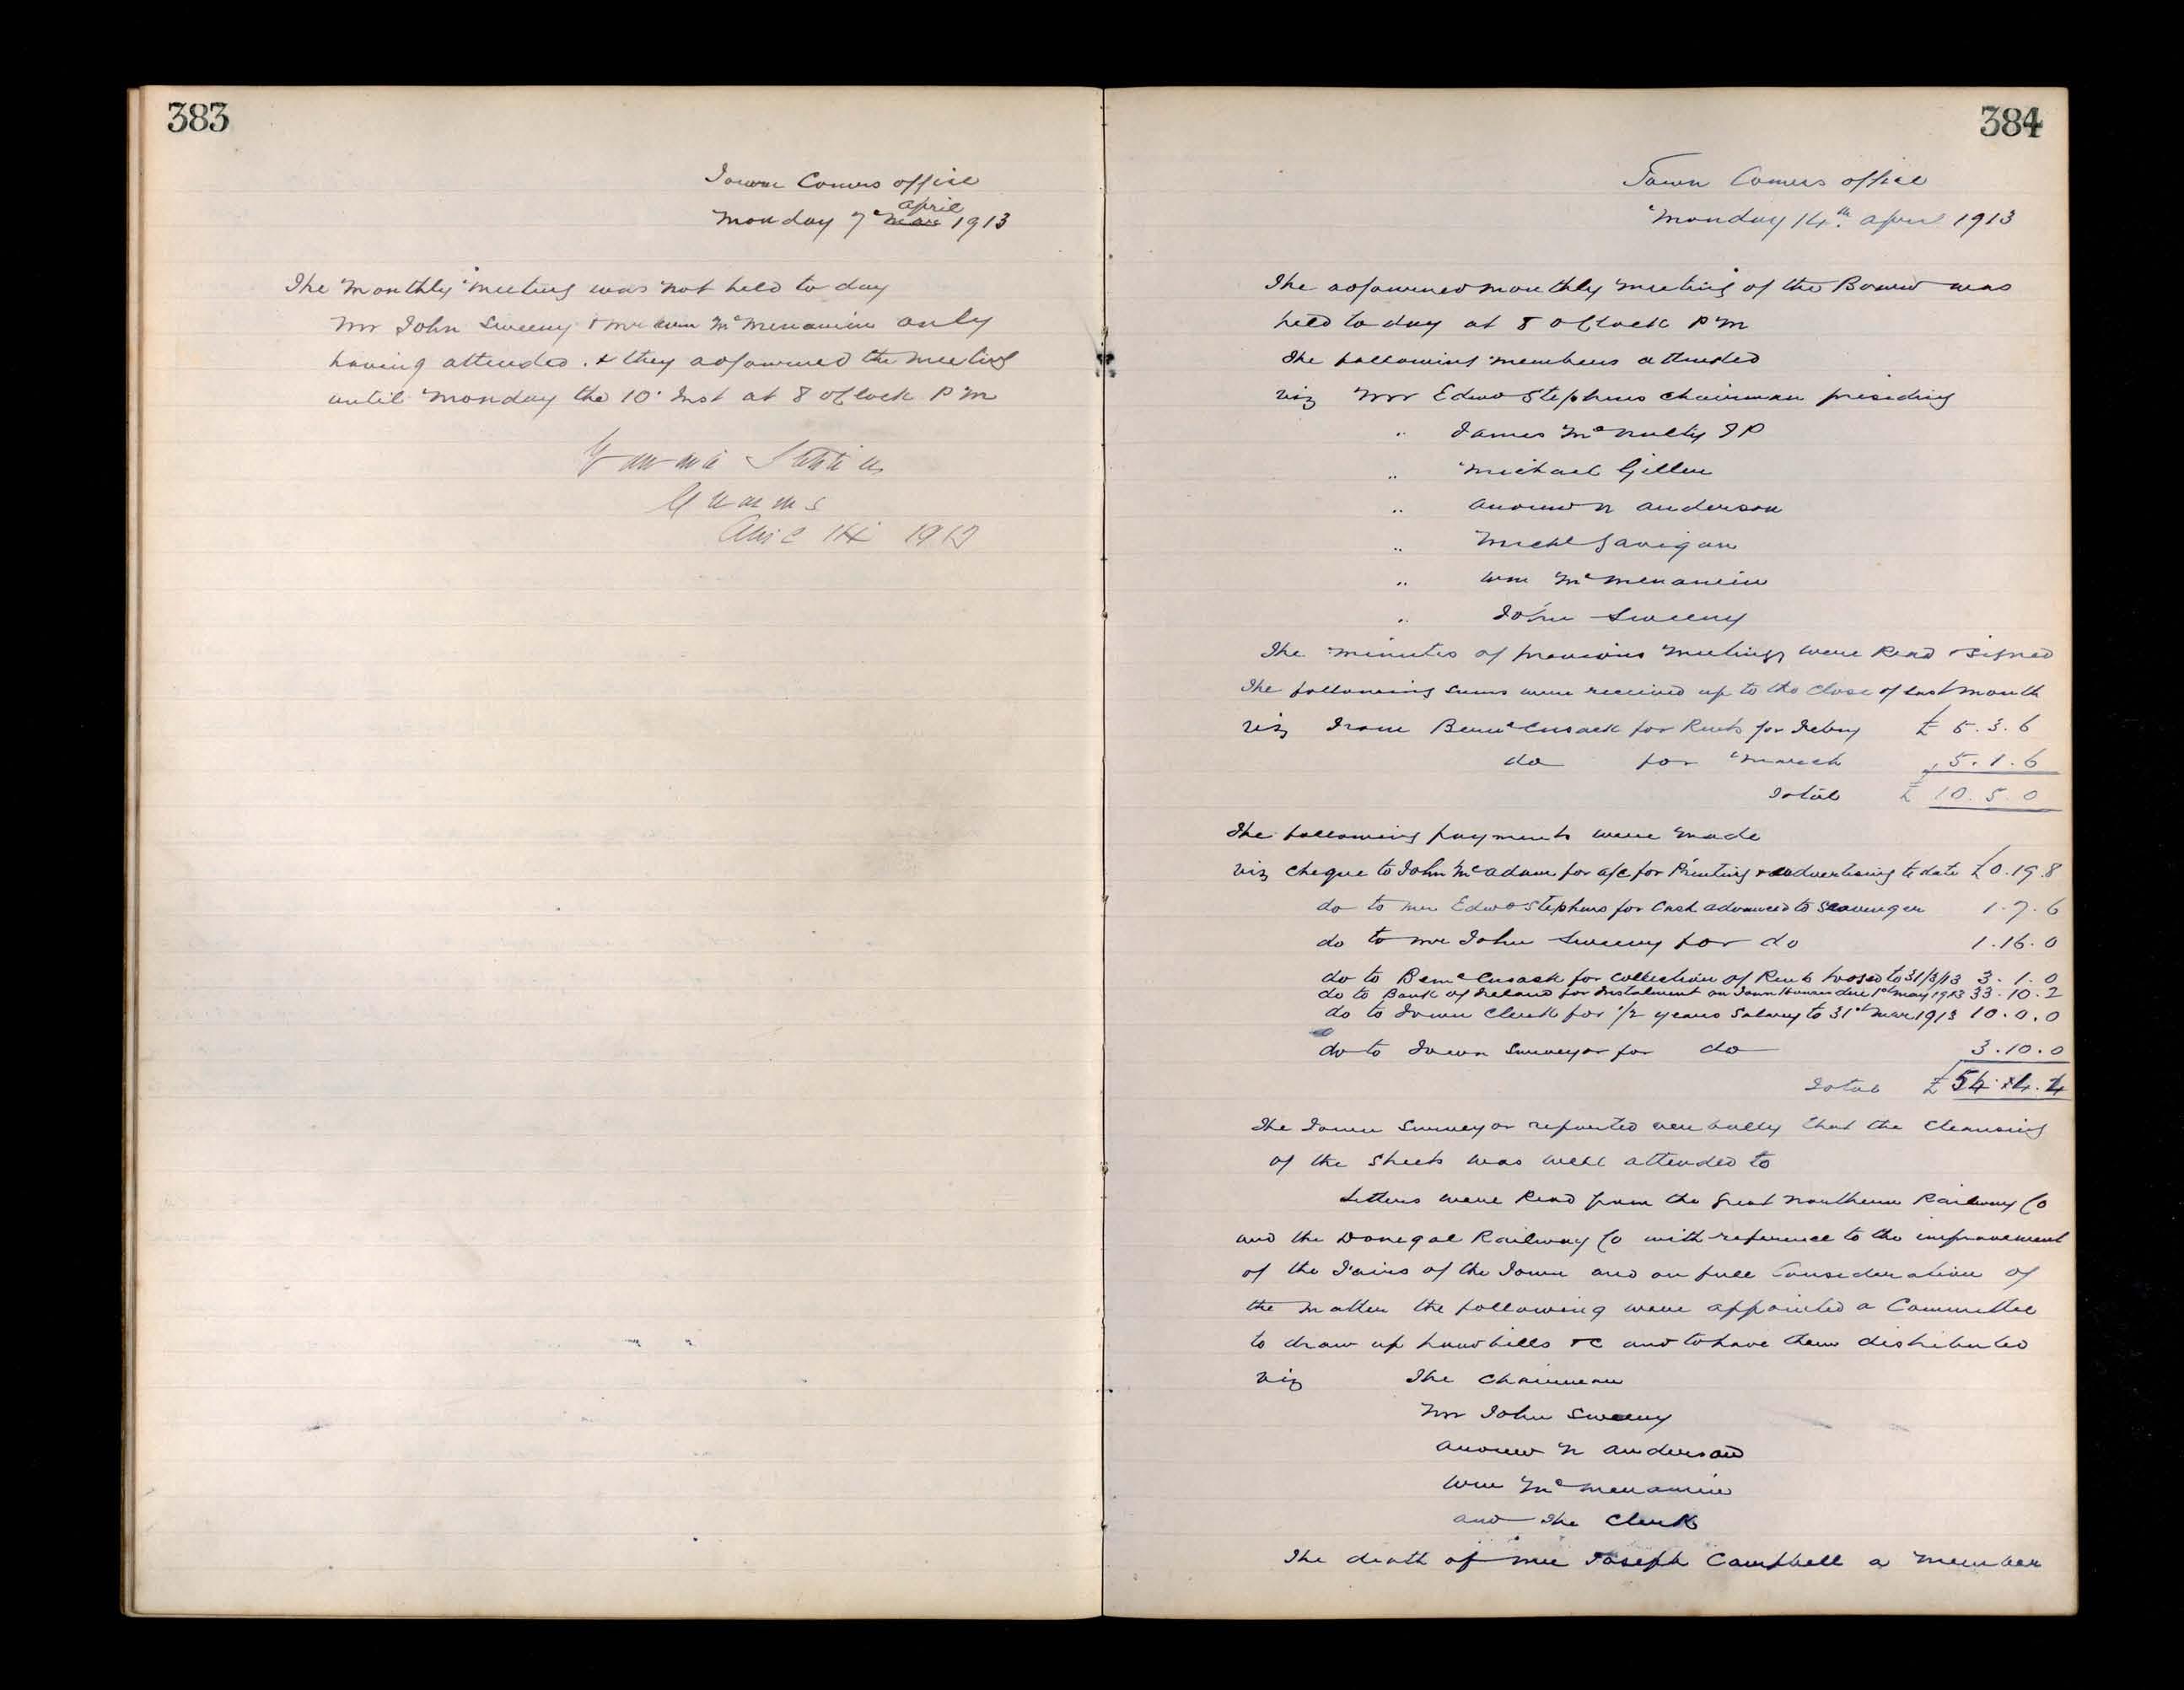 383
Town Comrs office
Monday 7 Mar april 1913
The Monthly meeting was not held to day
Mr John Sweeny & Mr Wm McMenamin only
having attended . & they adjourned the meeting
until Monday the 10 Inst at 8 oClock P M
April 14 1913
384
Town Comrs office
Monday 14th april 1913
The adjourned monthly meeting of the Board was
held to day at 8 oClock P M
The following members attended
viz Mr Edwd Stephens Chairman presiding
" James McNulty J P
" Michael Gillen
" Andrew N Anderson
" Michl Gavigan
" Wm McMenamin
" John Sweeny
The minutes of previous meetings were Read & signed
The following sums were received up to the Close of last month
viz From Bernd Cusack for Rents for Febry £ 5 . 3 . 6
do for March 5 . 1 . 6
Total £ 10 . 5 . 0
The following payments were made
viz Cheque to John McAdam for a/c for Printing & advertising to date £0 . 19 . 8
do to Mr Edwd Stephens for Cash advanced to Scavenger 1 . 7 . 6
do to Mr John Sweeny for do 1 . 16 . 0
do to Bernd Cusack for Collection of Rents to 31/3/13 3 . 1 . 0
do to Bank of Ireland for Instalment on Town Houses due 1st May 1913 33 . 10 . 2
do to Town Clerk for 1/2 years Salary to 31st Mar 1913 10 . 0 . 0
do to Town Surveyor for do 3 . 10 . 0
Total £ 54 . 4 . 4
The Town Surveyor reported verbally that the Cleansing
of the Streets was well attended to
Letters were Read from the Great Northern Railway Co
and the Donegal Railway Co with reference to the improvement
of the Fairs of the Town and on full Consideration of
the matter the following were appointed a Committee
to draw up handbills &c and to have them distributed
viz The Chairman
Mr John Sweeny
Andrew N Anderson
Wm McMenamin
and The Clerk
The death of Mr Joseph Campbell a Member